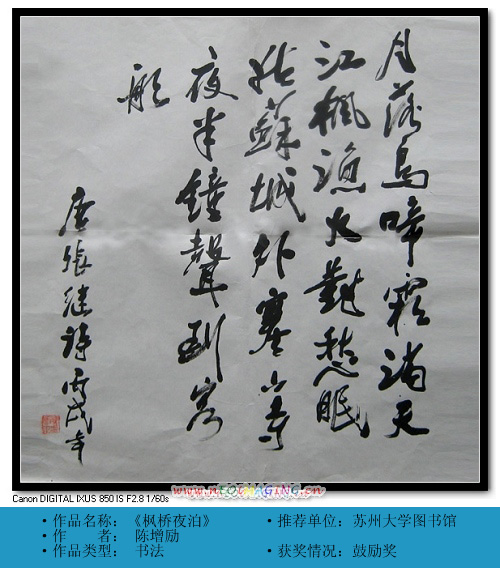 月落烏啼霜满天
江楓漁火對愁眠
姑蘇城外寒山寺
夜半鐘聲到客
船
唐張继诗丙戌年
Canon DIGITAL IXUS 850 IS F2.8 1/60s
·作品名称：《枫桥夜泊》 ·推荐单位：苏州大学图书馆
·作 者：陈增励
·作品类型：书法 ·获奖情况：鼓励奖